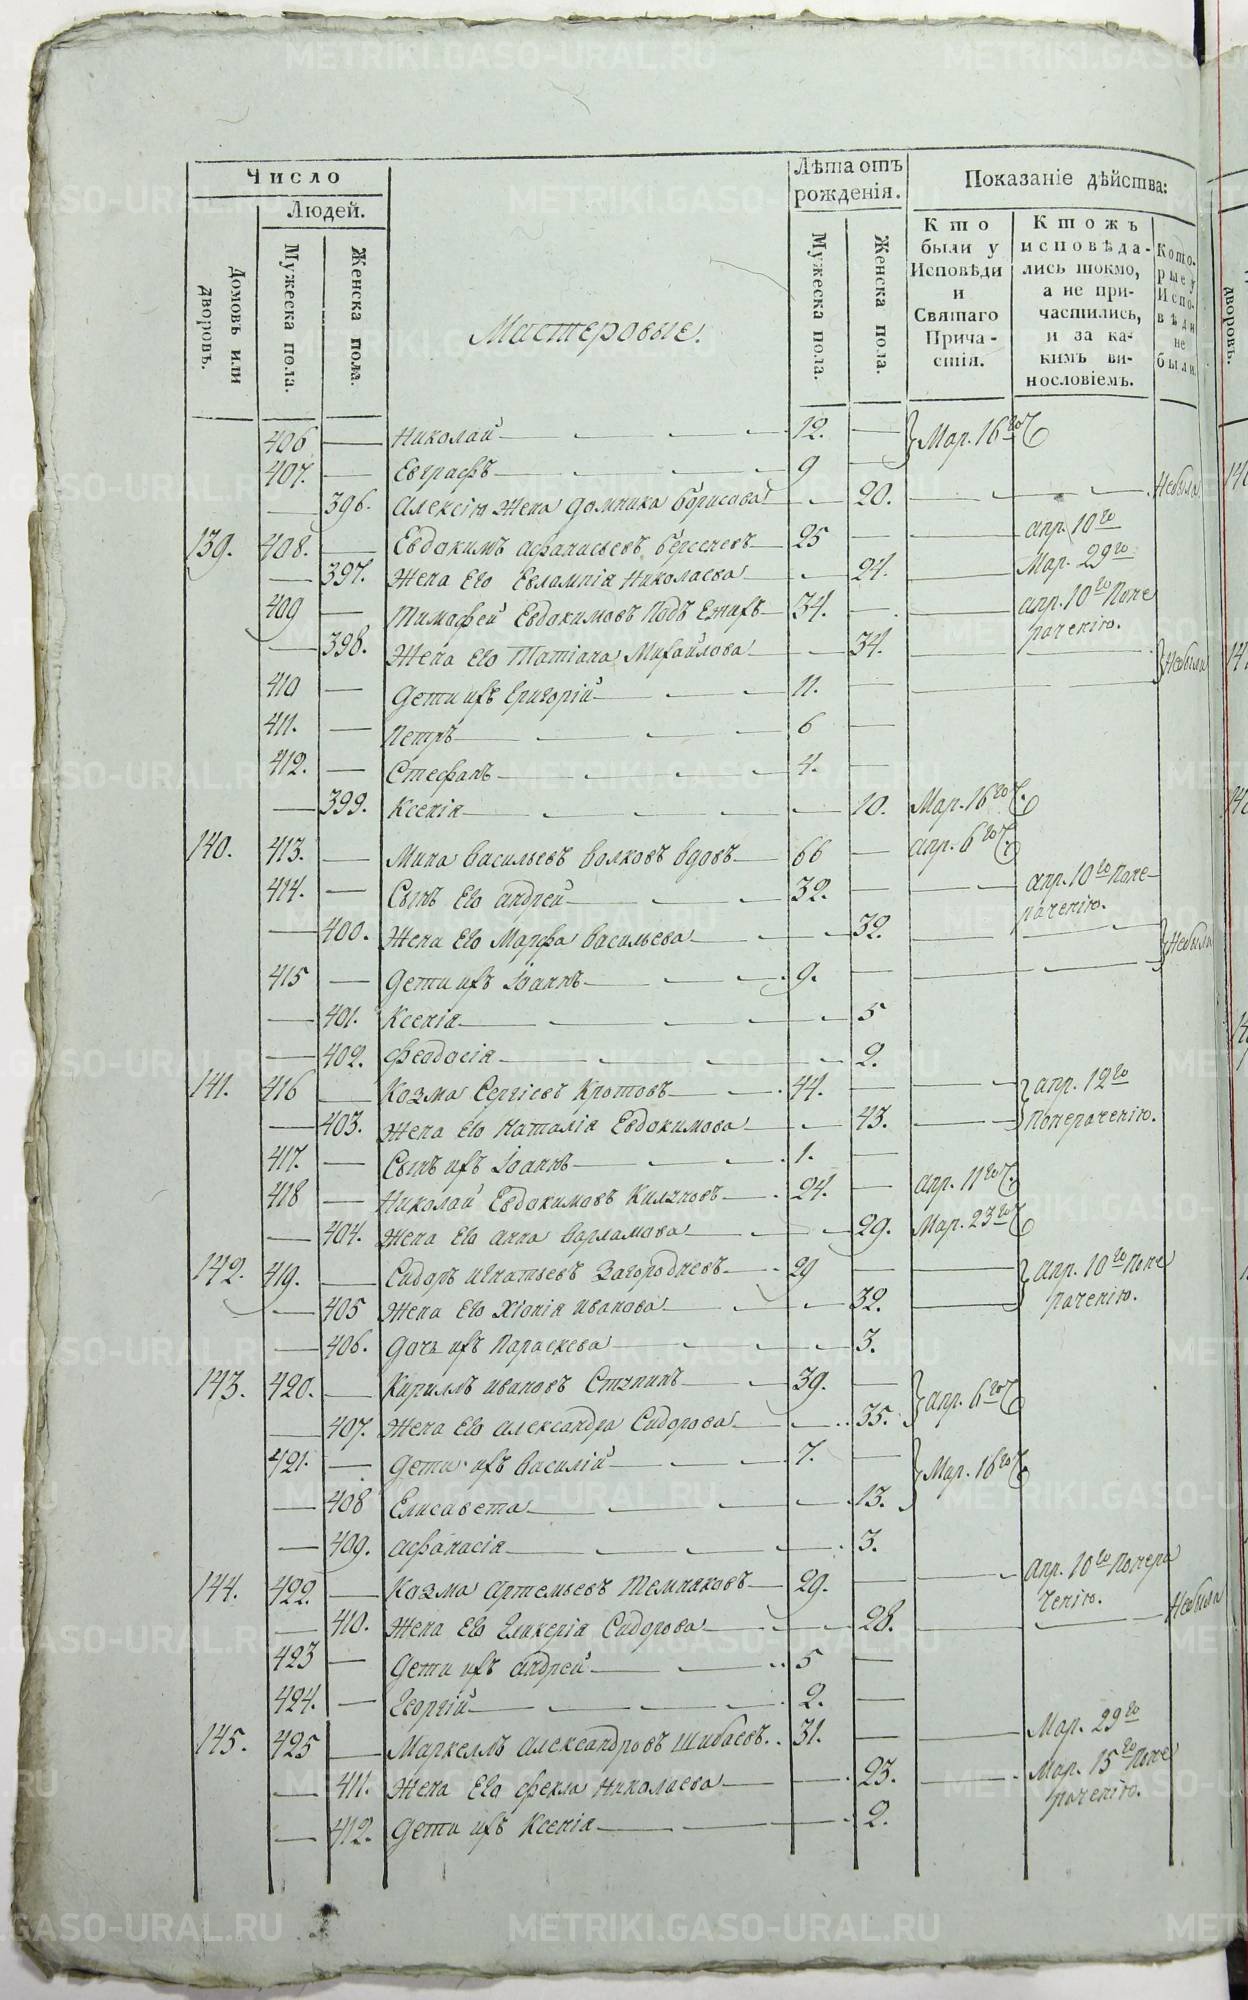 Число
Людей.
Домовъ или дворовъ.
Мужеска пола.
Женска пола.
Мастеровые.
Лѣта отъ рожденія.
Мужеска пола.
Женска пола.
Показаніе дѣйства:
Кто были у Исповѣди и Святаго Причастія.
Ктожъ исповѣдались токмо, а не причастились, и за какимъ винословіемъ.
Которые у Исповѣди не были
406 — Николай — 12. — Мар. 16го
407. — Евграфъ — 9 —
— 396. Алексію Жена Домника Борисова — 20. — — Небыла
139. 408. — Евдокимъ Афанасьевъ Берсеневъ — 25 — — Апр. 10го
— 397. Жена Его Евлампія Николаева — 24. — Мар. 29го
409 — Тимофей Евдокимовъ — 34. — — Апр. 10го Поне
— 398. Жена Его Татіана Михайлова — 34. — раченію.
410 — Дети ихъ Григорій — 11. — — Небыли
411. — Петръ — 6 —
412. — Стефанъ — 4. —
— 399. Ксенія — 10. Мар. 16го
140. 413. — Мина Васильевъ Волковъ вдовъ — 66 — Апр. 6го
414. — Сынъ Его Андрей — 32. — — Апр. 10го Поне-
— 400. Жена Его Марфа Васильева — 32. — раченію.
415 — Дети ихъ Іоаннъ — 9. — — Небыли
— 401. Ксенія — 5
— 402. Феодосія — 2.
141. 416 — Козма Сергіевъ Кротовъ — 44. — — Апр. 12го
— 403. Жена Его Наталія Евдокимова — 43. — Понераченію.
417. — Сынъ ихъ Іоаннъ — 1. —
418 — Николай Евдокимовъ — 24. — Апр. 11го
— 404. Жена Его Анна Варламова — 29. Мар. 23го
142. 419. — Сидоръ Игнатьевъ Загородневъ — 29 — — Апр. 10го Поне
— 405 Жена Его Хіонія Иванова — 32. — раченію.
— 406. Дочь ихъ Параскева — 3.
143. 420. — Кириллъ Ивановъ Ступинъ — 39. — Апр. 6го
— 407. Жена Его Александра Сидорова — 35.
421. — Дети ихъ Василій — 7. — Мар. 16го
— 408 Елисавета — 13.
— 409. Афанасія — 3.
144. 422. — Козма Артемьевъ Темняковъ — 29. — — Апр. 10го Понера
— 410. Жена Его Гликерія Сидорова — 28. — ченію. — Небыла
423 — Дети ихъ Андрей — 5 —
424. — Георгій — 2. —
145. 425 — Маркеллъ Александровъ Шибаевъ. 31. — — Мар. 29го
— 411. Жена Его Фекла Николаева — 23. — Мар. 15го Поне
— 412. Дети ихъ Ксенія — 2. раченію.
METRIKI.GASO-URAL.RU